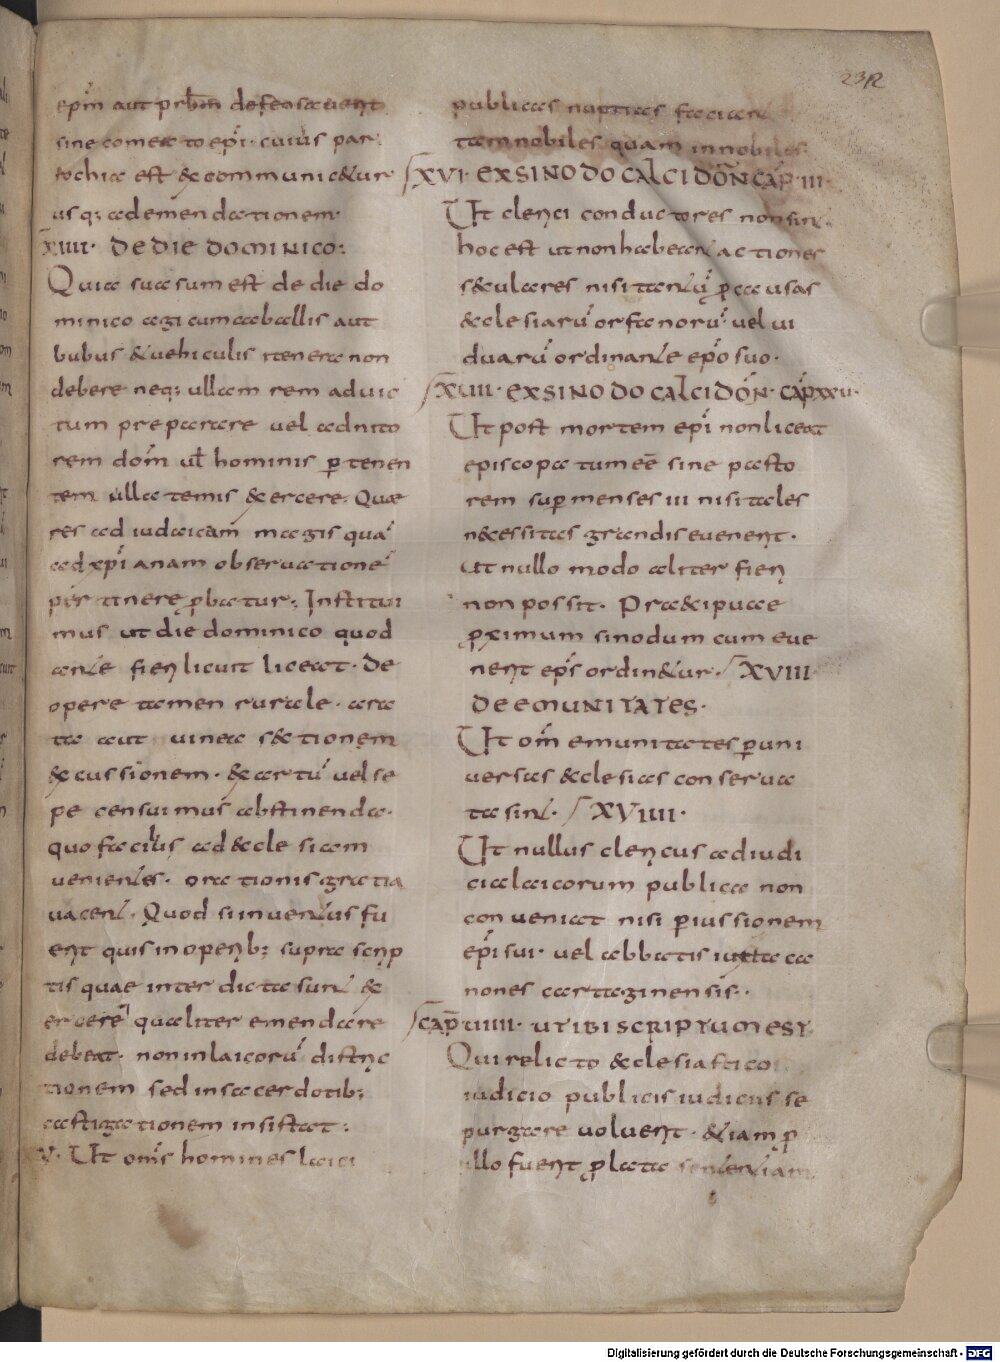 232
epm̄ aut prbm̄ defensauerit
sine comeato epi· cuius par
rochia est & communicetur
usq; ad emendationem·
XIIII· DE DIE DOMINICO:
Quia suasum est de die do
minico agi cum caballis aut
bubus & uehiculis itenera non
debere neq; ullam rem ad uic
tum preparare uel ad nito
rem dom̄ ul̄ hominis ꝑtenen
tem ullatemis exercere. Quae
res ad iudaicam magis quā
ad xpīanam obseruationē
pertinere ꝓbatur; Institui
mus ut die dominico quod
ante fieri licuit liceat. De
opere tamen rurale· ara
ta aut uinea sectionem
excussionem· exartū uel se
pe censuimus abstinenda·
quo facilius ad ecclesiam
uenientes· orationis gratia
uacent· Quod si inuentus fu
erit quis in operib; supra scrip
tis quae interdicta sunt ex
ercere qualiter emendare
debeat· non in laicorū distric
tionem sed in sacerdotib;
castigationem insistat:
V· Ut om̄s homines laici
publicas nuptias faciant
tam nobiles quam innobiles
XVI· EX SINODO CALCIDŌN CAP̄·III·
Ut clerici conductores non sint·
hoc est ut non habeant actiones
seculares nisi tantū ꝓ causas
ecclesiarū orfanorū· uel ui
duarū ordinante epo suo·
XVII· EX SINODO CALCIDŌN· CAP̄ XXV·
Ut post mortem epi non liceat
episcopatum eē sine pasto
rem supmenses iii nisi tales
necessitas grandis euenerit·
ut nullo modo aliter fieri
non possit. Praecipuae
ꝓximum sinodum cum eue
nerit eps ordinetur· XVIII·
DE EMUNITATES·
Ut om̄ emunitates ꝑ uni
uersas ecclesias conserua
ta sint· XVIIII·
Ut nullus clericus ad iudi
cia laicorum publica non
conueniat nisi ꝑ iussionem
epi sui· uel abbatis iuxta ca
nones cartaginensis··
CAP̄ UIIII· UT IBI SCRIPTUM EST
Qui relicto ecclesiastico
iudicio publicis iudiciis se
purgare uoluerit· etiam ꝓ
illo fuerit ꝓlata sententiam
Digitalisierung gefördert durch die Deutsche Forschungsgemeinschaft - DFG